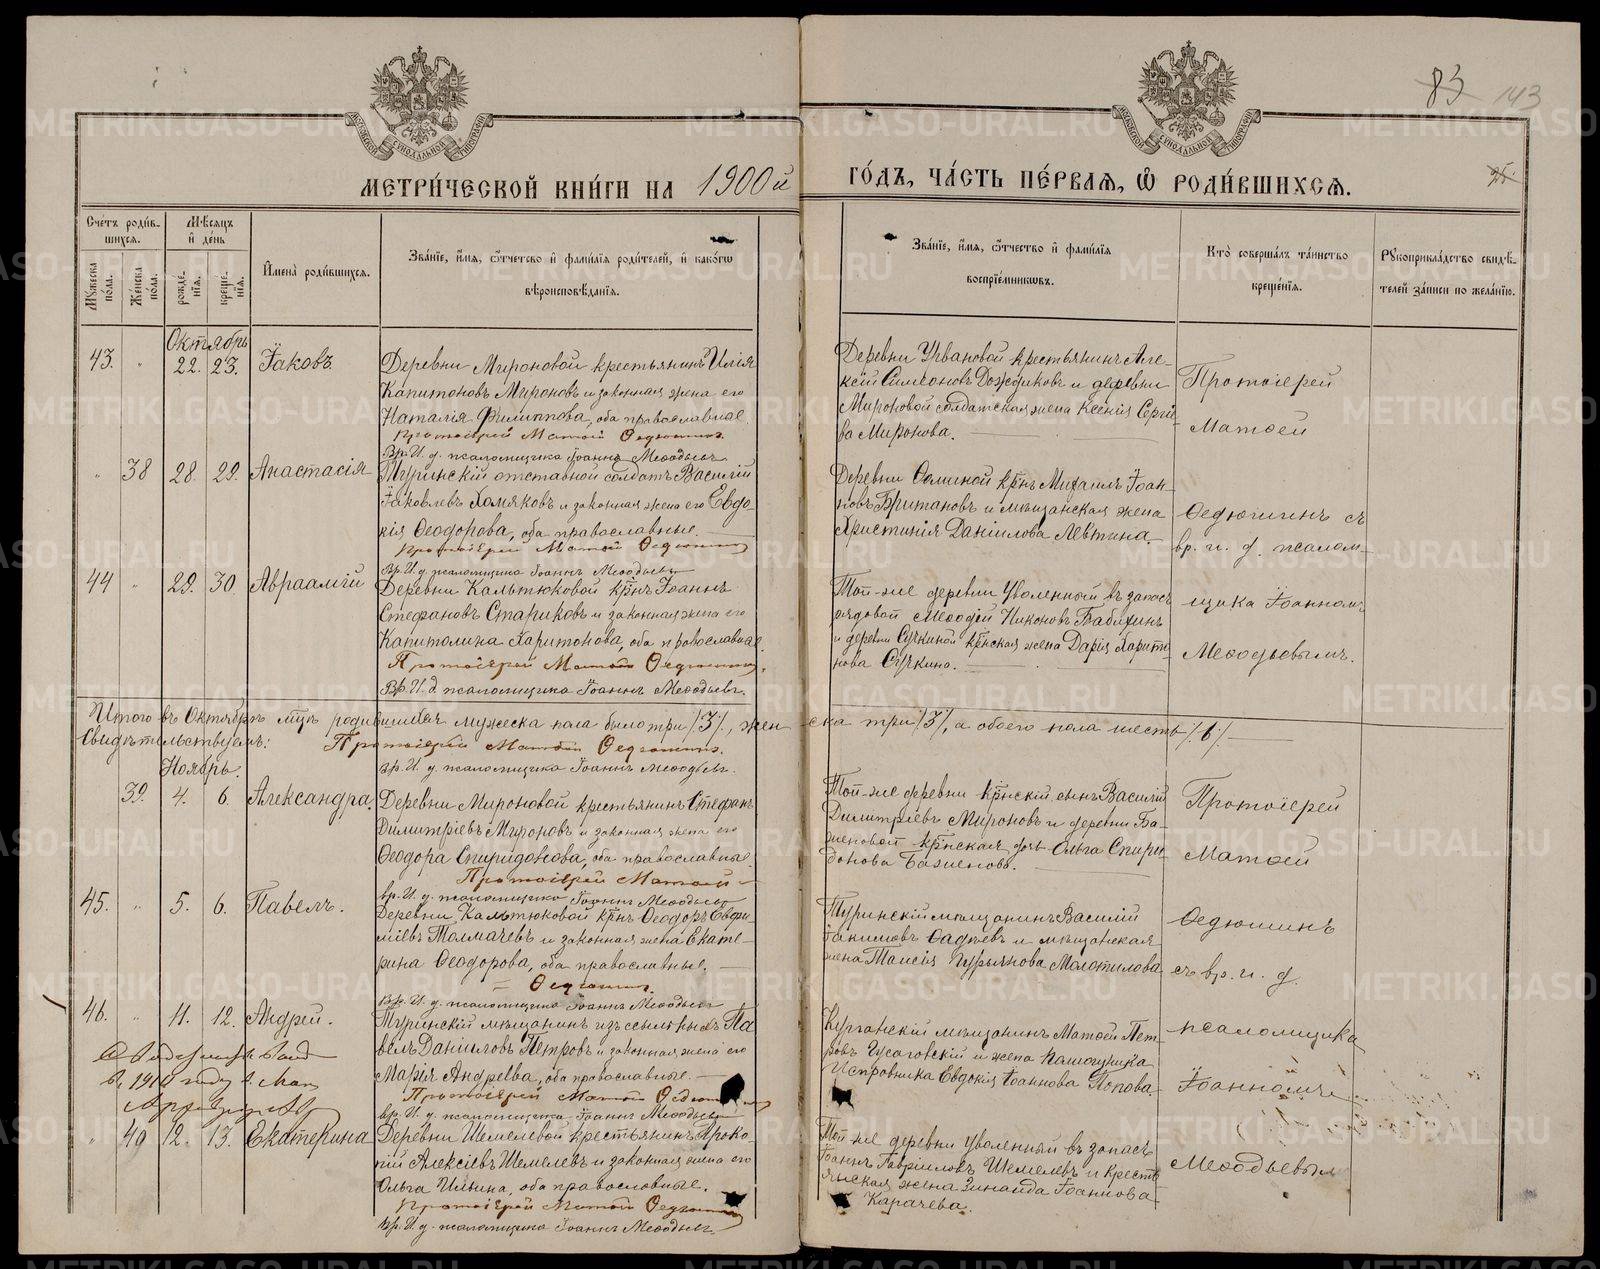 83 143
МОСКОВСКОЙ СѴНОДАЛЬНОЙ ТИПОГРАФІИ
МОСКОВСКОЙ СѴНОДАЛЬНОЙ ТИПОГРАФІИ
МЕТРИ́ЧЕСКОЙ КНИ́ГИ НА 1900й ГО́ДЪ, ЧА́СТЬ ПЕ́РВАЯ, Ѡ҆ РОДИ́ВШИХСЯ.
Сче́тъ роди́в-
шихся.
Мꙋ́жеска по́ла.
Же́нска по́ла.
Мѣ́сяцъ
и҆ де́нь
рожде́-
нїя.
креще́-
нїя.
И҆мена̀ роди́вшихся.
Зва́нїе, и҆́мя, ѻ҆́тчество и҆ фами́лїя роди́телей, и҆ како́гѡ
вѣроисповѣ́данїя.
Зва́нїе, и҆́мя, ѻ҆́тчество и҆ фами́лїя
воспрїе́мникѡвъ.
Кто̀ соверша́лъ та́инство
креще́нїя.
Рꙋкоприкла́дство свидѣ́-
телей за́писи по жела́нїю.
Октябрь
43. " 22. 23. Іаковъ.
Деревни Мироновой крестьянинъ Илія
Капитоновъ Мироновъ и законная жена его
Наталія Филиппова, оба православные.
Протоіерей Матѳей Ѳедюшинъ.
Вр. И. д. псаломщика Іоаннъ Меѳодьевъ
Деревни Учвановой крестьянинъ Але-
ксій Симеоновъ Дождиковъ и деревни
Мироновой солдатская жена Ксенія Сергі-
ева Миронова.
Протоіерей
Матѳей
" 38 28. 29. Анастасія
Туринскій отставной солдатъ Василій
Іаковлевъ Хомяковъ и законная жена его Евдо-
кія Ѳеодорова, оба православные.
Протоіерей Матѳей Ѳедюшинъ
Вр. И. д. псаломщика Іоаннъ Меѳодьевъ
Деревни Ѳоминой кр̃нъ Михаилъ Іоан-
новъ Британовъ и мѣщанская жена
Христинія Даніилова Левтина.
Ѳедюшинъ съ
вр. и. д. псалом-
44 " 29. 30. Авраамій
Деревни Кальтюковой кр̃нъ Іоаннъ
Стефановъ Стариковъ и законная жена его
Капитолина Харитонова, оба православные.
Протоіерей Матѳей Ѳедюшинъ.
Вр. И. д. псаломщика Іоаннъ Меѳодьевъ.
Той-же деревни уволенный въ запасъ
рядовой Меѳодій Никоновъ Бабихинъ
и деревни Сучкиной кр̃нская жена Дарія Харито-
нова Сучкина.
щика Іоанномъ
Меѳодьевымъ.
Итого въ Октябрѣ мц̃ѣ родившихся мужеска пола было три /3/, жен-
ска три /3/, а обоего пола шесть /6/.
Свидѣтельствуемъ: Протоіерей Матѳей Ѳедюшинъ.
Вр. И. д. псаломщика Іоаннъ Меѳодьевъ.
Ноябрь.
39. 4. 6. Александра.
Деревни Мироновой крестьянинъ Стефанъ
Димитріевъ Мироновъ и законная жена его
Ѳеодора Спиридонова, оба православные.
Протоіерей Матѳей
вр. И. д. псаломщика Іоаннъ Меѳодьевъ
Той-же деревни кр̃нскій сынъ Василій
Димитріевъ Мироновъ и деревни Ба-
женовой кр̃нская дочь Ольга Спири-
донова Баженова.
Протоіерей
Матѳей
45. " 5. 6. Павелъ.
Деревни Кальтюковой кр̃нъ Ѳеодоръ Евфи-
міевъ Толмачевъ и законная жена Екате-
рина Ѳеодорова, оба православные.
Ѳедюшинъ.
Вр. И. д. псаломщика Іоаннъ Меѳодьевъ
Туринскій мѣщанинъ Василій
Іакимовъ Ѳадѣевъ и мѣщанская
жена Таисія Гурьянова Молотилова
Ѳедюшинъ
съ вр. и. д.
46. " 11. 12. Андрей.
Туринскій мѣщанинъ изъ ссыльныхъ Па-
велъ Даніиловъ Петровъ и законная жена его
Марія Андреева, оба православные.
Протоіерей Матѳей Ѳедюшинъ
вр. И. д. псаломщика Іоаннъ Меѳодьевъ
Курганскій мѣщанинъ Матѳей Пет-
ровъ Гусаговскій и жена помощника
Исправника Евдокія Іоаннова Попова.
псаломщика
Іоанномъ
" 40 12. 13. Екатерина
Деревни Шемелевой крестьянинъ Проко-
пій Алексіевъ Шемелевъ и законная жена его
Ольга Ильина, оба православные.
Протоіерей Матѳей Ѳедюшинъ
Вр. И. д. псаломщика Іоаннъ Меѳодьевъ
Той-же деревни уволенный въ запасъ
Іоаннъ Гавріиловъ Шемелевъ и кресть-
янская жена Зинаида Іоаннова
Карачева.
Меѳодьевымъ
METRIKI.GASO-URAL.RU